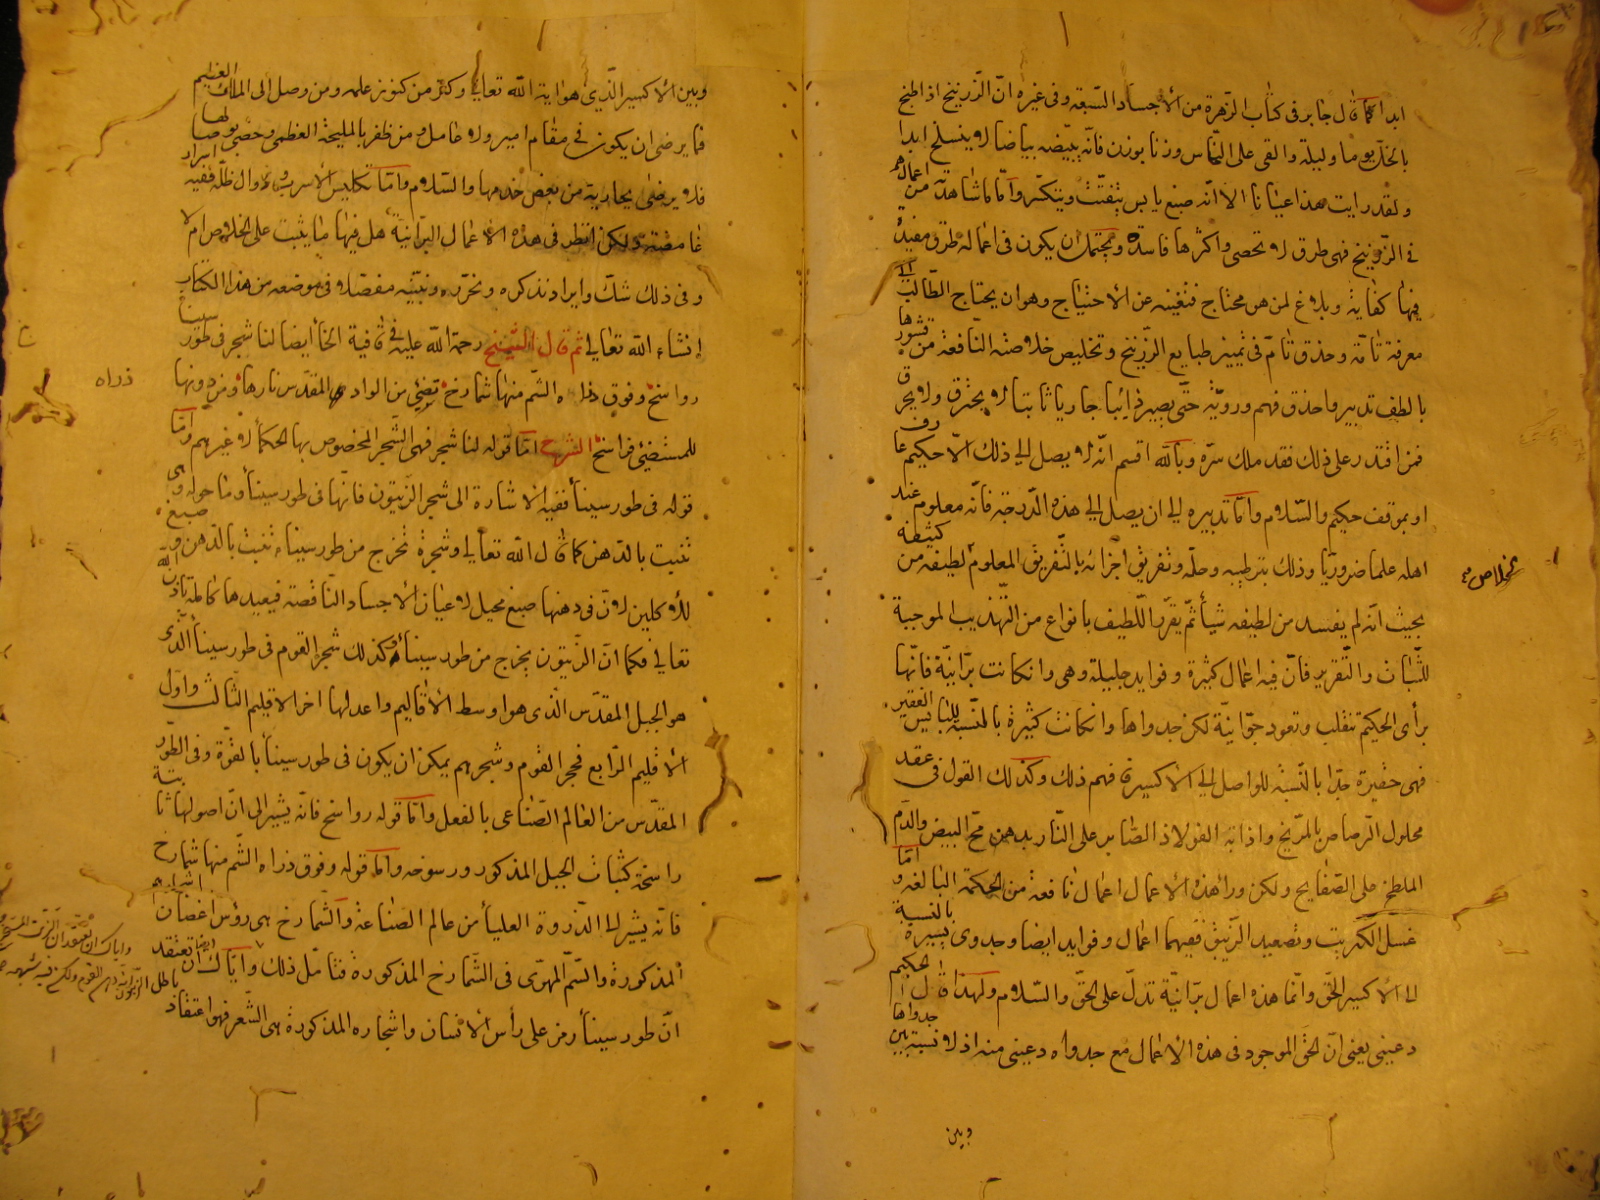 ابدا كما قال جابر فى كتاب الزهرة من الأجساد السبعة وفى غيره ان الزرنيخ اذا طبخ
بالخل يوما وليلة والقى على النحاس وزنا بوزن فانه يبيضه بياضا لا ينسلخ ابدا
ولقد رايت هذا عيانا الا انه صبغ يابس يتفتت ويتكسر واما ما شاهدته من اعمالهم
فى الزرنيخ فهى طرق لا تحصى واكثرها فاسدة ويحتمل ان يكون فى اعماله طرق مفيدة
فيها كفاية وبلاغ لمن هو محتاج فتغنيه عن الأحتياج وهو ان يحتاج الطالب الى
معرفة تامة وحذق تام فى تمييز طبايع الزرنيخ وتخليص خلاصته النافعة من قشورها
بالطف تدبير واحذق فهم وروية حتى يصير ذائبا جاريا ثابتا لا يحترق ولا يحرق
فمن اقتدر على ذلك فقد ملك سره وبالله اقسم انه لا يصل الى ذلك الا حكيم عارف
او بموقف حكيم والسلام واما تدبيره الى ان يصل الى هذه الدرجة فانه معلوم عند
اهله علما ضروريا وذلك بترطيبه وحله وتفريق اجزائه بالتفريق المعلوم لطيفه من كثيفه
بحيث انه لم يفسد من لطيفه شيأ ثم يقرر اللطيف بانواع من التهذيب الموجبة
للثبات والتقرير فان فيه اعمال كثيرة وفوايد جليلة وهى وان كانت برانية فانها
برأى الحكيم تنقلب وتعود جوانية لكن جدواها وان كانت كثيرة بالنسبة للبايس الفقير
فهى حقيرة جدا بالنسبة للواصل الى الاكسير فافهم ذلك وكذلك القول فى عقد
محلول الرصاص بالمريخ واذابة الفولاذ الصابر على النار بدهن مح البيض والدم
الملطخ على الصفايح ولكن وراء هذه الأعمال اعمال نافعة من الحكمة البالغة واما
غسل الكبريت وتصعيد الزيبق ففيهما اعمال وفوايد ايضا وجدوى يسيرة بالنسبة
الى الأكسير الحق وانما هذه اعمال برانية تدل على الحق والسلام ولهذا قال الحكيم
دعينى يعنى ان الحق الموجود فى هذه الأعمال مع جدواه دعينى منه اذ لا نسبة بين جدواها
وبين
خلاص
وبين الأكسير الذى هو اية الله تعالى وكنز من كنوز علمه ومن وصل الى الملك العظيم
فما يرضى ان يكون فى مقام امير ولا عامل ومن ظفر بالمليحة العظمى وحضى بوصالها
فلا يرضى بجارية من بعض خدمها والسلام واما تكليس الأسرب وزوال ظله ففيه اسرار
غامضة ولكن انظر فى هذه الأعمال البرانية هل فيها ما يثبت على الخلاص ام لا
وفى ذلك شك وايراد نذكره ونحرره ونبينه مفصلا فى موضعه من هذا الكتاب
انشاء الله تعالى ثم قال الشيخ رحمة الله عليه فى قافية الخاء ايضا لنا شجر فى طور سينا
رواسخ وفوق ذراه الشم منها شمارخ تضئ من الوادى المقدس نارها ومن دونها
للمستضئ فراسخ الشرح اما قوله لنا شجر فهى الشجر المخصوص بها الحكماء لا غيرهم واما
قوله فى طور سيناء ففيه الاشارة الى شجر الزيتون فانها فى طور سيناء وما حوله وهى
تنبت بالدهن كما قال الله تعالى وشجرة تخرج من طور سيناء تنبت بالدهن وصبغ
للأكلين لان فى دهنها صبغ محيل لاعيان الأجساد الناقصة فيعيدها كاملة باذن الله
تعالى فكما ان الزيتون يخرج من طور سيناء وكذلك شجر القوم فى طور سيناء الذى
هو الجبل المقدس الذى هو اوسط الأقاليم واعدلها اخر الاقليم الثالث واول
الأقليم الرابع فحجر القوم وشجرهم يمكن ان يكون فى طور سيناء بالقوة وفى الطور
المقدس من العالم الصناعى بالفعل واما قوله رواسخ فانه يشير الى ان اصولها ثابتة
راسخة كثبات الجبل المذكور ورسوخه واما قوله وفوق ذراه الشم منها شمارخ
فانه يشير الى الذروة العلياء من عالم الصناعة والشمارخ هى رؤس اغصان اشجارهم
المذكورة والسم المهرى فى الشمارخ المذكورة فتامل ذلك واياك ان تعتقد ايضا
ان طور سيناء رمز على رأس الأنسان واشجاره المذكورة هى الشعر فهو اعتقاد
ذراه
واياك ان تعتقد ان الزيت
باطل